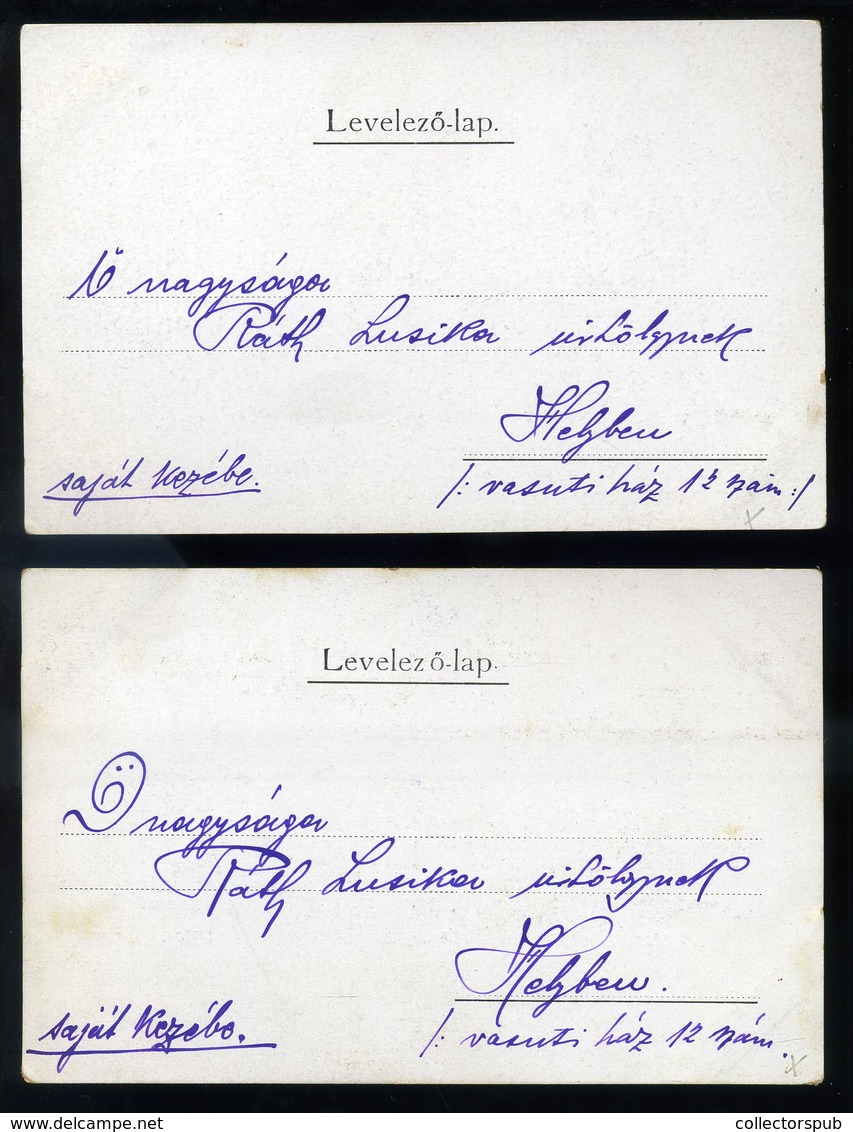 Levelező-lap.
Ő nagysága
Ráth Lusika úrhölgynek
Helyben
saját kezébe.
/: vasuti ház 12 szám :/
Levelező-lap.
Ő nagysága
Ráth Lusika úrhölgynek
Helyben.
saját kezébe.
/: vasuti ház 12 szám.
delcampe.net
collectorspub